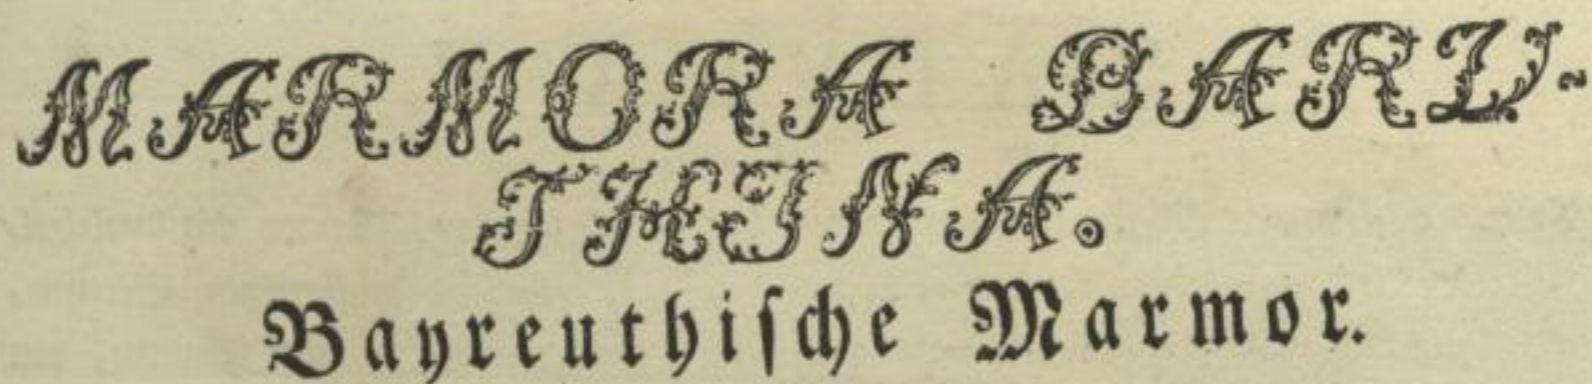 MARMORA BARU-
THINA.
Bayreuthiſche Marmor.